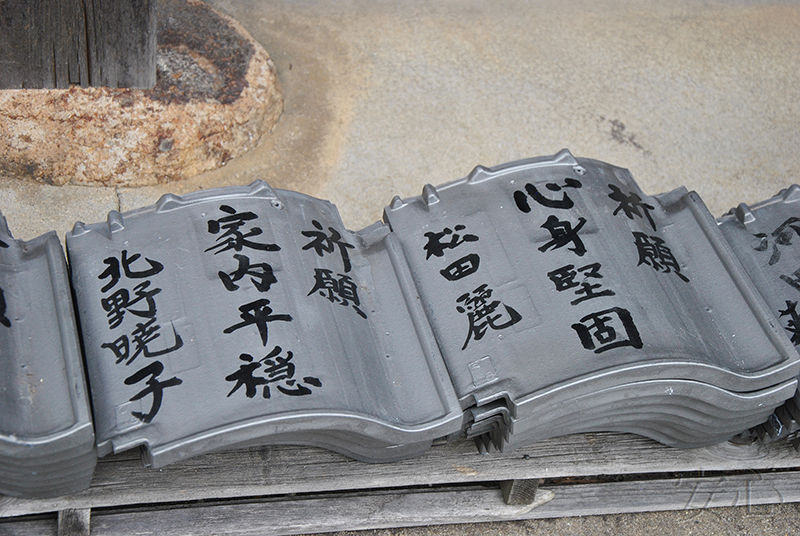 祈願
家内平穏
北野暁子
祈願
心身堅固
松田麗
河